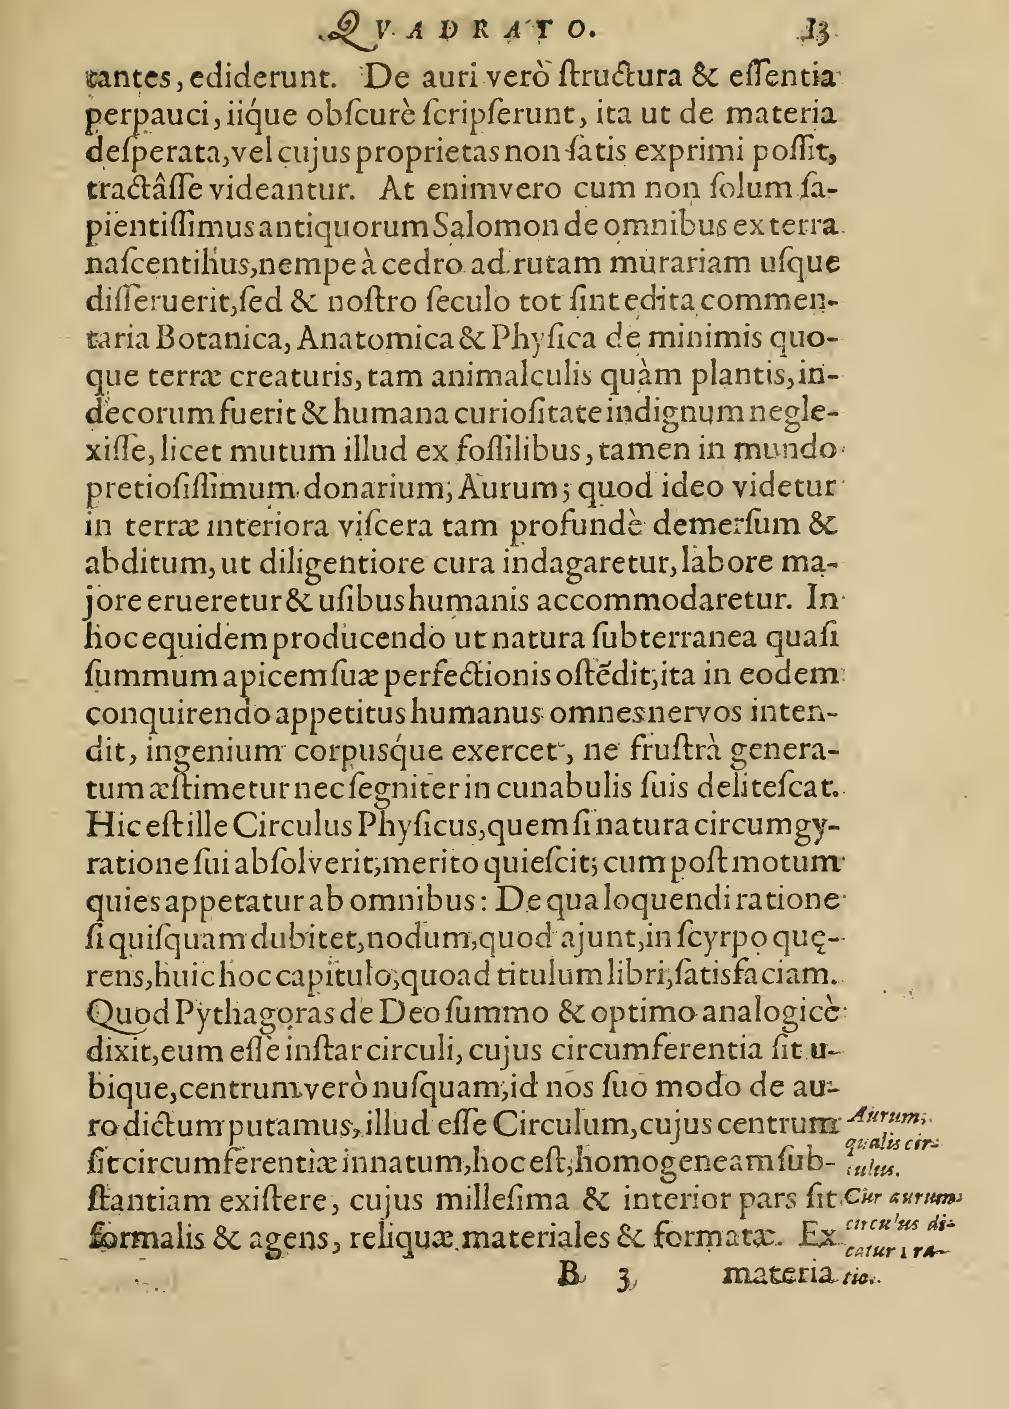 QVADRATO. 13
tantes, ediderunt. De auri verò ſtructura & eſſentia
perpauci, iiq́ue obſcurè ſcripſerunt, ita ut de materia
deſperata, vel cujus proprietas non ſatis exprimi poſſit,
tractâſſe videantur. At enimvero cum non ſolum ſa-
pientiſſimus antiquorum Salomon de omnibus ex terra
naſcentibus, nempe à cedro ad rutam murariam uſque
diſſeruerit, ſed & noſtro ſeculo tot ſint edita commen-
taria Botanica, Anatomica & Phyſica de minimis quo-
que terræ creaturis, tam animalculis quàm plantis, in-
decorum fuerit & humana curioſitate indignum negle-
xiſſe, licet mutum illud ex foſſilibus, tamen in mundo
pretioſiſſimum donarium, Aurum; quod ideo videtur
in terræ interiora viſcera tam profundè demerſum &
abditum, ut diligentiore cura indagaretur, labore ma-
jore erueretur & uſibus humanis accommodaretur. In
hoc equidem producendo ut natura ſubterranea quaſi
ſummum apicem ſuæ perfectionis oſtẽdit, ita in eodem
conquirendo appetitus humanus omnes nervos inten-
dit, ingenium corpusq́ue exercet, ne fruſtrà genera-
tum æſtimetur nec ſegniter in cunabulis ſuis deliteſcat.
Hic eſt ille Circulus Phyſicus, quem ſi natura circumgy-
ratione ſui abſolverit, merito quieſcit; cum poſt motum
quies appetatur ab omnibus: De qua loquendi ratione
ſi quiſquam dubitet, nodum, quod ajunt, in ſcyrpo quę-
rens, huic hoc capitulo, quoad titulum libri, ſatisfaciam.
Quod Pythagoras de Deo ſummo & optimo analogicè
dixit, eum eſſe inſtar circuli, cujus circumferentia ſit u-
bique, centrum verò nuſquam, id nos ſuo modo de au-
ro dictum putamus, illud eſſe Circulum, cujus centrum
ſit circumferentiæ innatum, hoc eſt, homogeneam ſub-
ſtantiam exiſtere, cujus milleſima & interior pars ſit
formalis & agens, reliquæ materiales & formatæ. Ex
B 3 materia
Aurum,
qualis cir-
culus.
Cur aurum
circulus di-
catur, ra-
tio.